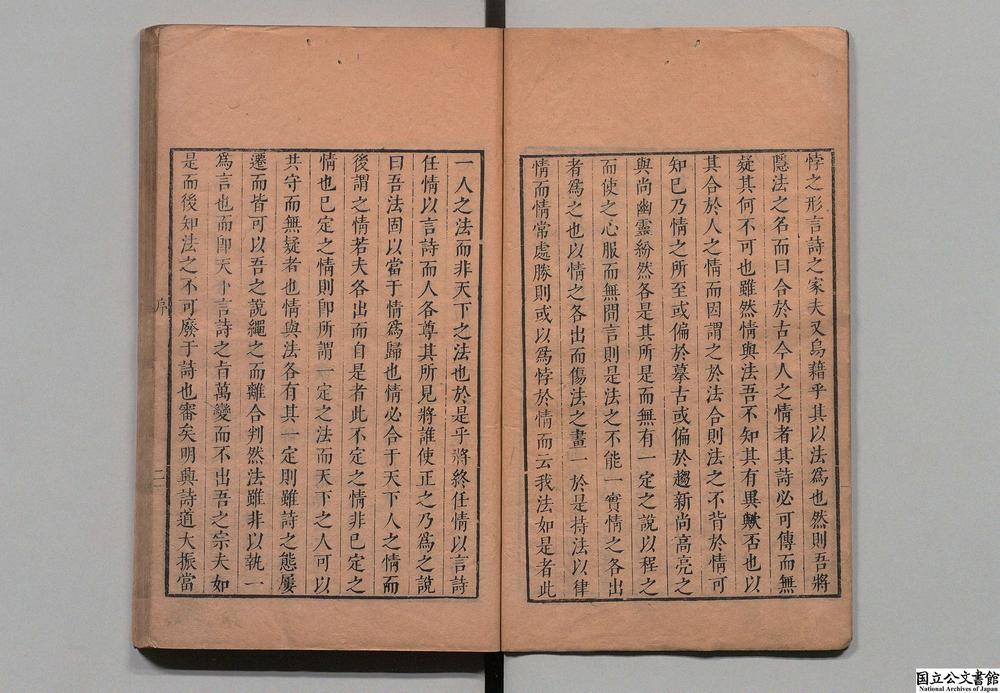 悖之形言詩之家夫又烏藉乎其以法爲也然則吾將
隱法之名而曰合於古今人之情者其詩必可傳而無
疑其何不可也雖然情與法吾不知其有異歟否也以
其合於人之情而因謂之於法合則法之不背於情可
知已乃情之所至或偏於摹古或偏於趨新尚高亮之
與尚幽靈紛然各是其所是而無有一定之說以程之
而使之心服而無間言則是法之不能一實情之各出
者爲之也以情之各出而傷法之畫一於是持法以律
情而情常處勝則或以爲悖於情而云我法如是者此
一人之法而非天下之法也於是乎將終任情以言詩
任情以言詩而人各尊其所見將誰使正之乃爲之說
曰吾法固以當于情爲歸也情必合于天下人之情而
後謂之情若夫各出而自是者此不定之情非已定之
情也已定之情則卽所謂一定之法而天下之人可以
共守而無疑者也情與法各有其一定則雖詩之態屢
遷而皆可以吾之說繩之而離合判然法雖非以執一
爲言也而卽天下言詩之旨萬變而不出吾之宗夫如
是而後知法之不可廢于詩也審矣明興詩道大振當
序
二
国立公文書館
National Archives of Japan